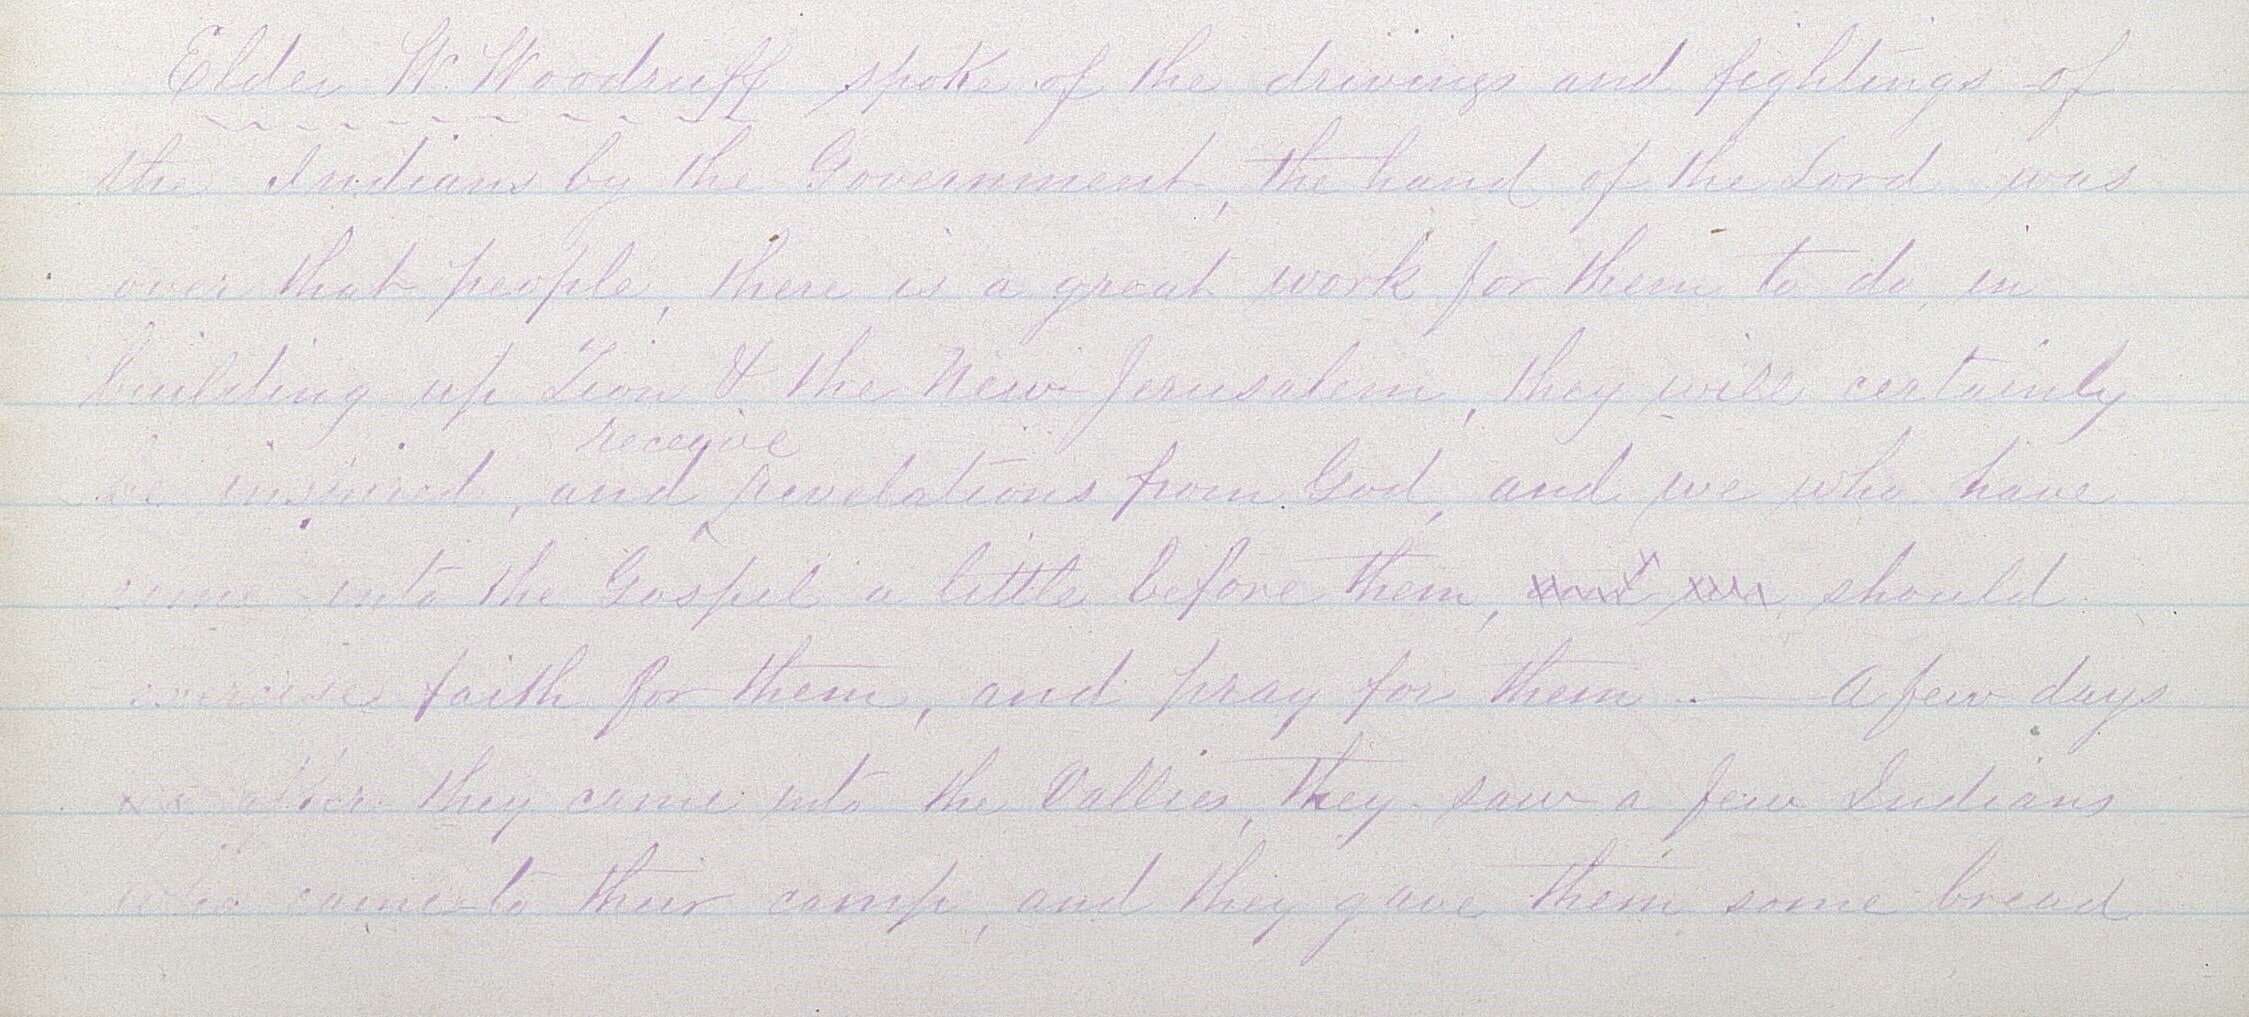 Elder W. Woodruff spoke of the drivings and fightings of
the Indians by the Government, the hand of the Lord was
over that people, there is a great work for them to do, in
building up Zion & the New Jerusalem, they will certainly
receive
be inspired, and revelations from God, and we who have
come into the Gospel a little before them, should
exercise faith for them, and pray for them. — A few days
after they came into the Vallies, they saw a few Indians
who came to their camp, and they gave them some bread